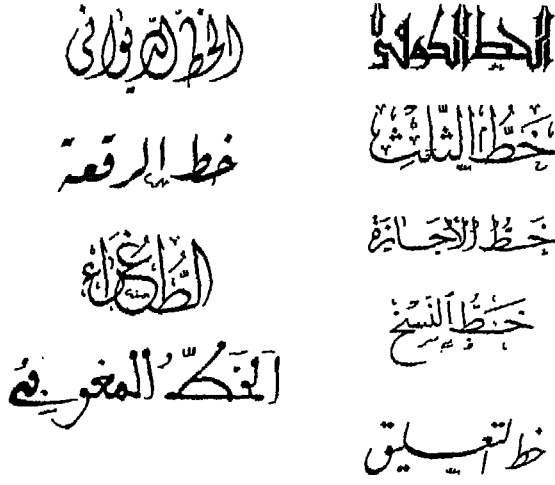 الخط الكوفي
خطّ الثّلث
خطّ الأجازة
خطّ النّسخ
خط التعليق
الخطّ الديواني
خط الرقعة
الطُّغراء
الخطّ المغربي